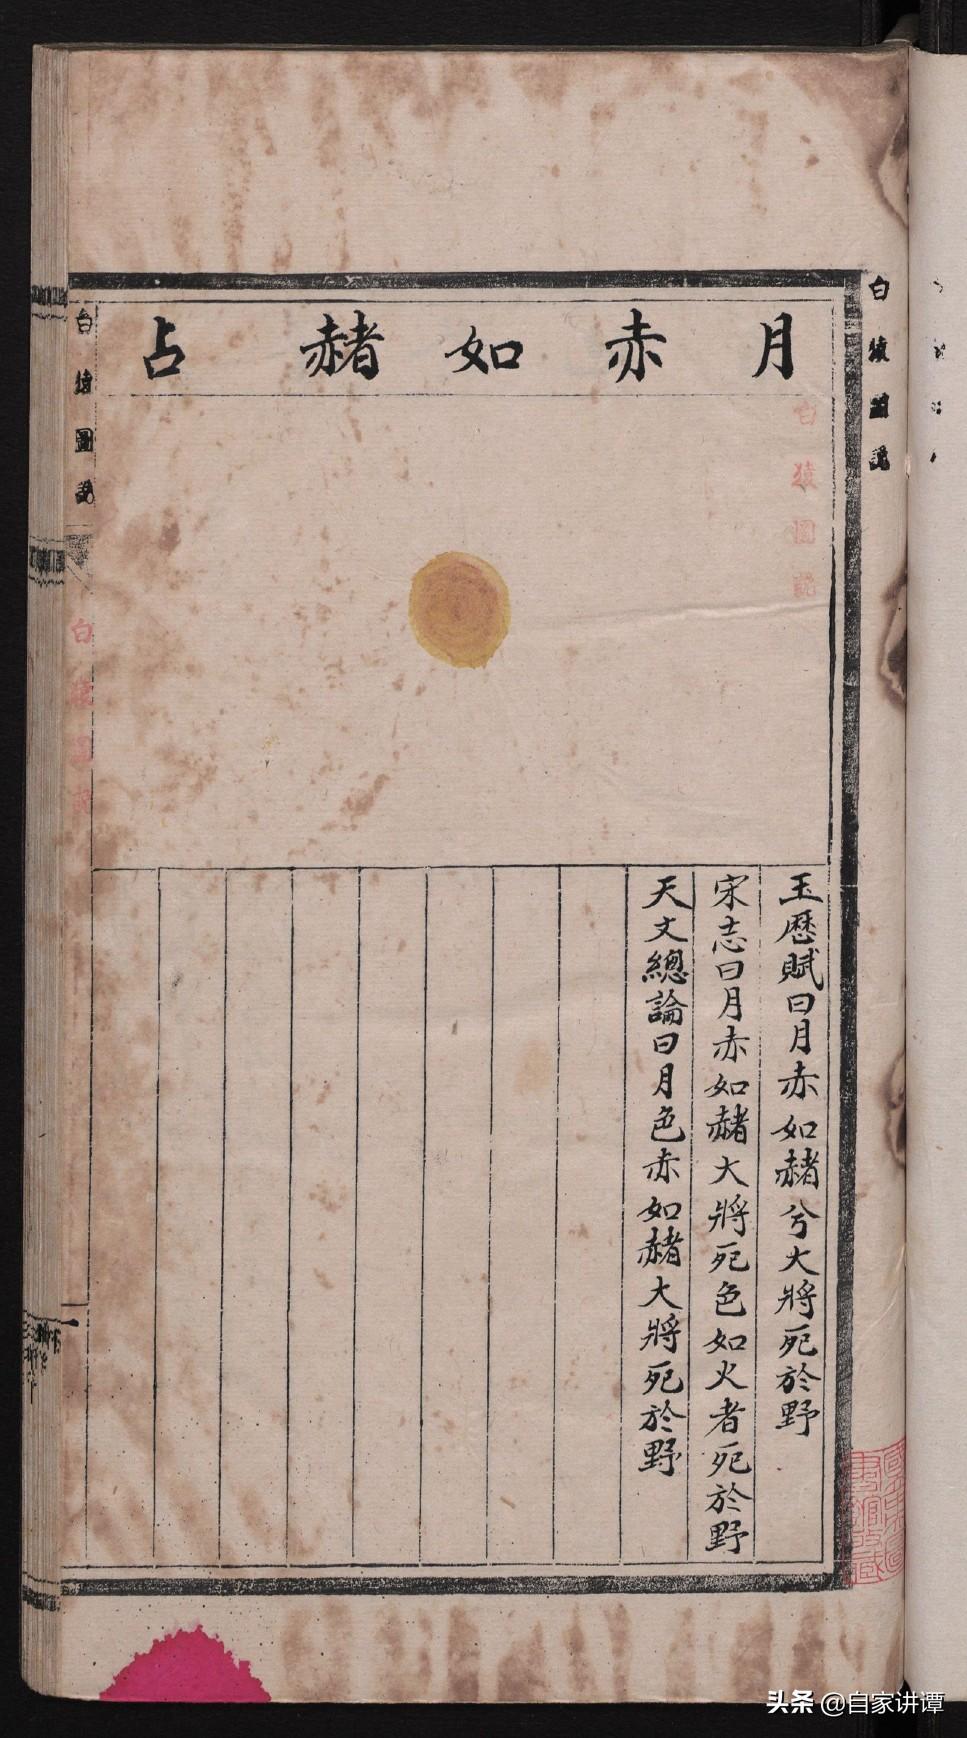 月赤如赭占
玉歷賦曰月赤如赭兮大將死於野
宋志曰月赤如赭大將死色如火者死於野
天文總論曰月色赤如赭大將死於野
白猿圖説
白猿圖説
白猿圖説
白
頭条 @自家讲谭